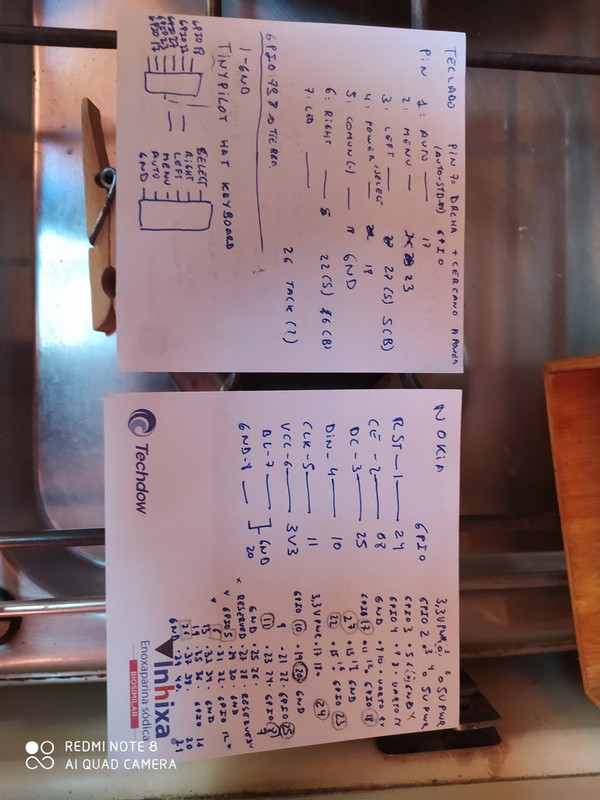 TECLADO PIN 7: DRCHA + CERCANO A
PIN (AUTO-STDBY) GPIO
1: AUTO — 17
2: MENU — 23
3: LEFT — 27 (S) 5 (B)
4: POWER/SELECT 18
5: COMUN (-) — GND
6: RIGHT — 22 (S) 6 (B)
7: LED —
26 TACK (?)
GPIO
1-GND
TINYPILOT HAT KEYBOARD
GPIO
GPIO
GPIO
GPIO
GPIO 17
SELECT
RIGHT
LEFT
MENU
AUTO
GND
NOKIA GPIO
RST — 1 — 24
CE — 2 — 08
DC — 3 — 25
DIN — 4 — 10
CLK — 5 — 11
VCC — 6 — 3V3
BL — 7 — ] GND
GND — 8 — 20
3,3V PWR 1 2 5V PWR
GPIO 2 3 4 5V PWR
GPIO 3 5 6 GND
GPIO 4 7 8 UART0 TX
GND 9 10 UART0 RX
GPIO 17 11 12 GPIO 18
27 13 14 GND
22 15 16 GPIO 23
3,3V PWR 17 18 24
GPIO 10 19 20 GND
9 21 22 GPIO 25
11 23 24 GPIO 8
GND 25 26 7
RESERVED 27 28 RESERVED
GPIO 5 29 30 GND
31 32 GPIO 12
33 34 GND
35 36 GPIO 16
37 38 20
GND 39 40 21
Techdow
Inhixa
Enoxaparina sódica
BIOSIMILAR
REDMI NOTE 8
AI QUAD CAMERA